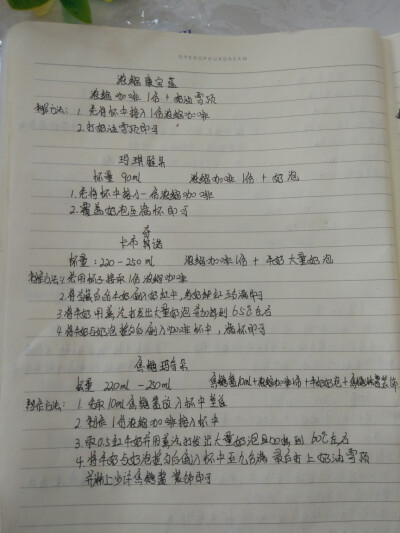 浓缩康宝蓝
浓缩咖啡1份 + 奶油雪顶
制作方法: 1. 先将杯中接入1份浓缩咖啡
2. 打奶油雪顶即可
玛琪雅朵
杯量 90ml 浓缩咖啡1份 + 奶泡
1. 先将杯中接入一份浓缩咖啡
2. 覆盖奶泡至满杯即可
卡布奇诺
杯量: 220-250ml 浓缩咖啡1份 + 牛奶大量奶泡
制作方法: 1. 用杯子接取1份浓缩咖啡
2. 将
3. 将牛奶用蒸汽打发出大量奶泡 65℃左右
4. 将牛奶与奶泡 倒入咖啡杯中, 满杯即可
焦糖玛奇朵
杯量 220ml-250ml 焦糖酱10ml+浓缩咖啡1份+牛奶奶泡+焦糖酱装饰
制作方法: 1. 先取10ml焦糖酱放入杯中
2. 制作1份浓缩咖啡接入杯中
3. 取0.5缸牛奶并用蒸汽打发出大量奶泡且加热到60℃左右
4. 将牛奶与奶泡 倒入杯中至九分满 最后打上奶油雪顶
并淋上少许焦糖酱 装饰即可